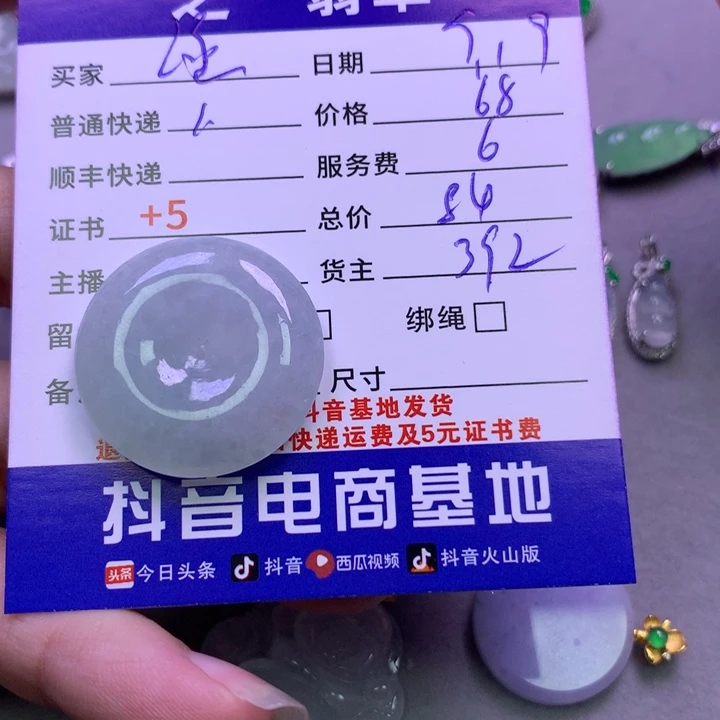 翡翠
买家 日期
普通快递 价格 68
顺丰快递 服务费 6
证书 +5 总价 84
主播 货主 392
留 绑绳
备 尺寸
抖音基地发货
退 快递运费及5元证书费
抖音电商基地
头条 今日头条 抖音 西瓜视频 抖音火山版